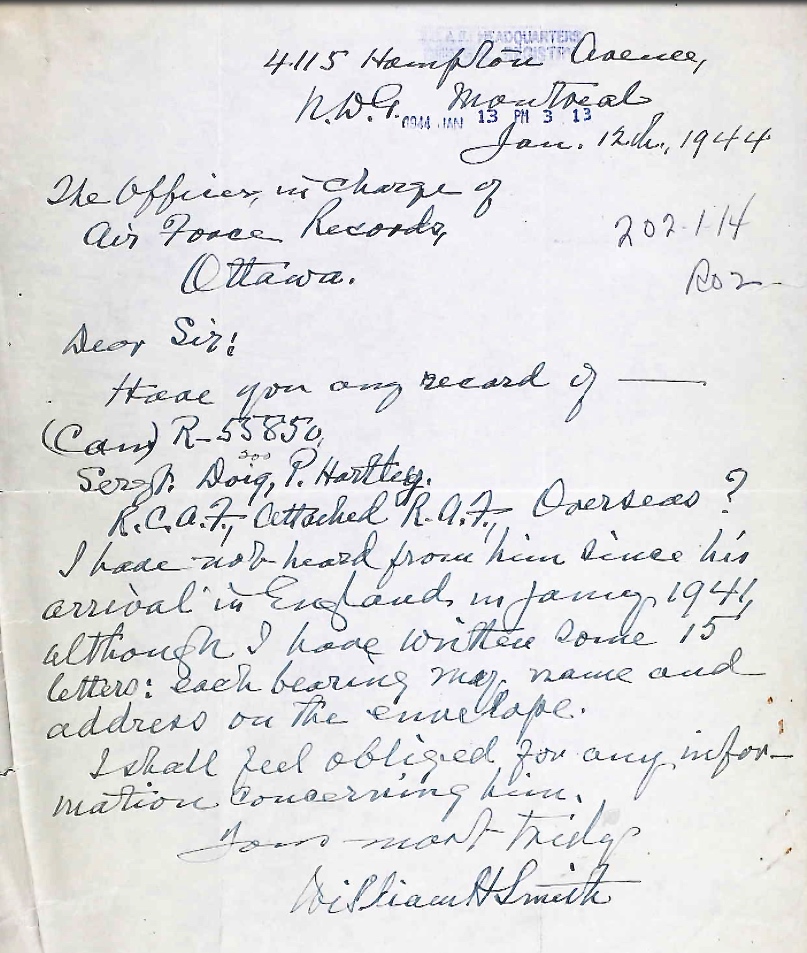 A.F. HEADQUARTERS
REGISTRY
4115 Hampton Avenue,
N.D.G. Montreal
1944 JAN 13 PM 3 13
Jan. 12th, 1944
The Officer, in charge of
Air Force Records,
202-1-14
Ottawa.
RO2
Dear Sir:
Have you any record of —
(Can) R-55850,
Sergt. Doig, P. Hartley.
R.C.A.F., attached R.A.F., Overseas?
I have not heard from him since his
arrival in England, in Jany, 1941,
although I have written some 15
letters: each bearing my name and
address on the envelope.
I shall feel obliged for any infor-
mation concerning him.
Yours most truly
William H Smith